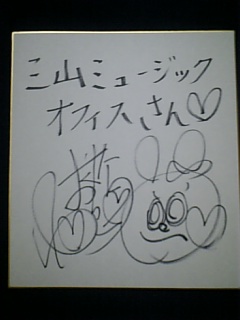 三山ミュージック
オフィスさん♡